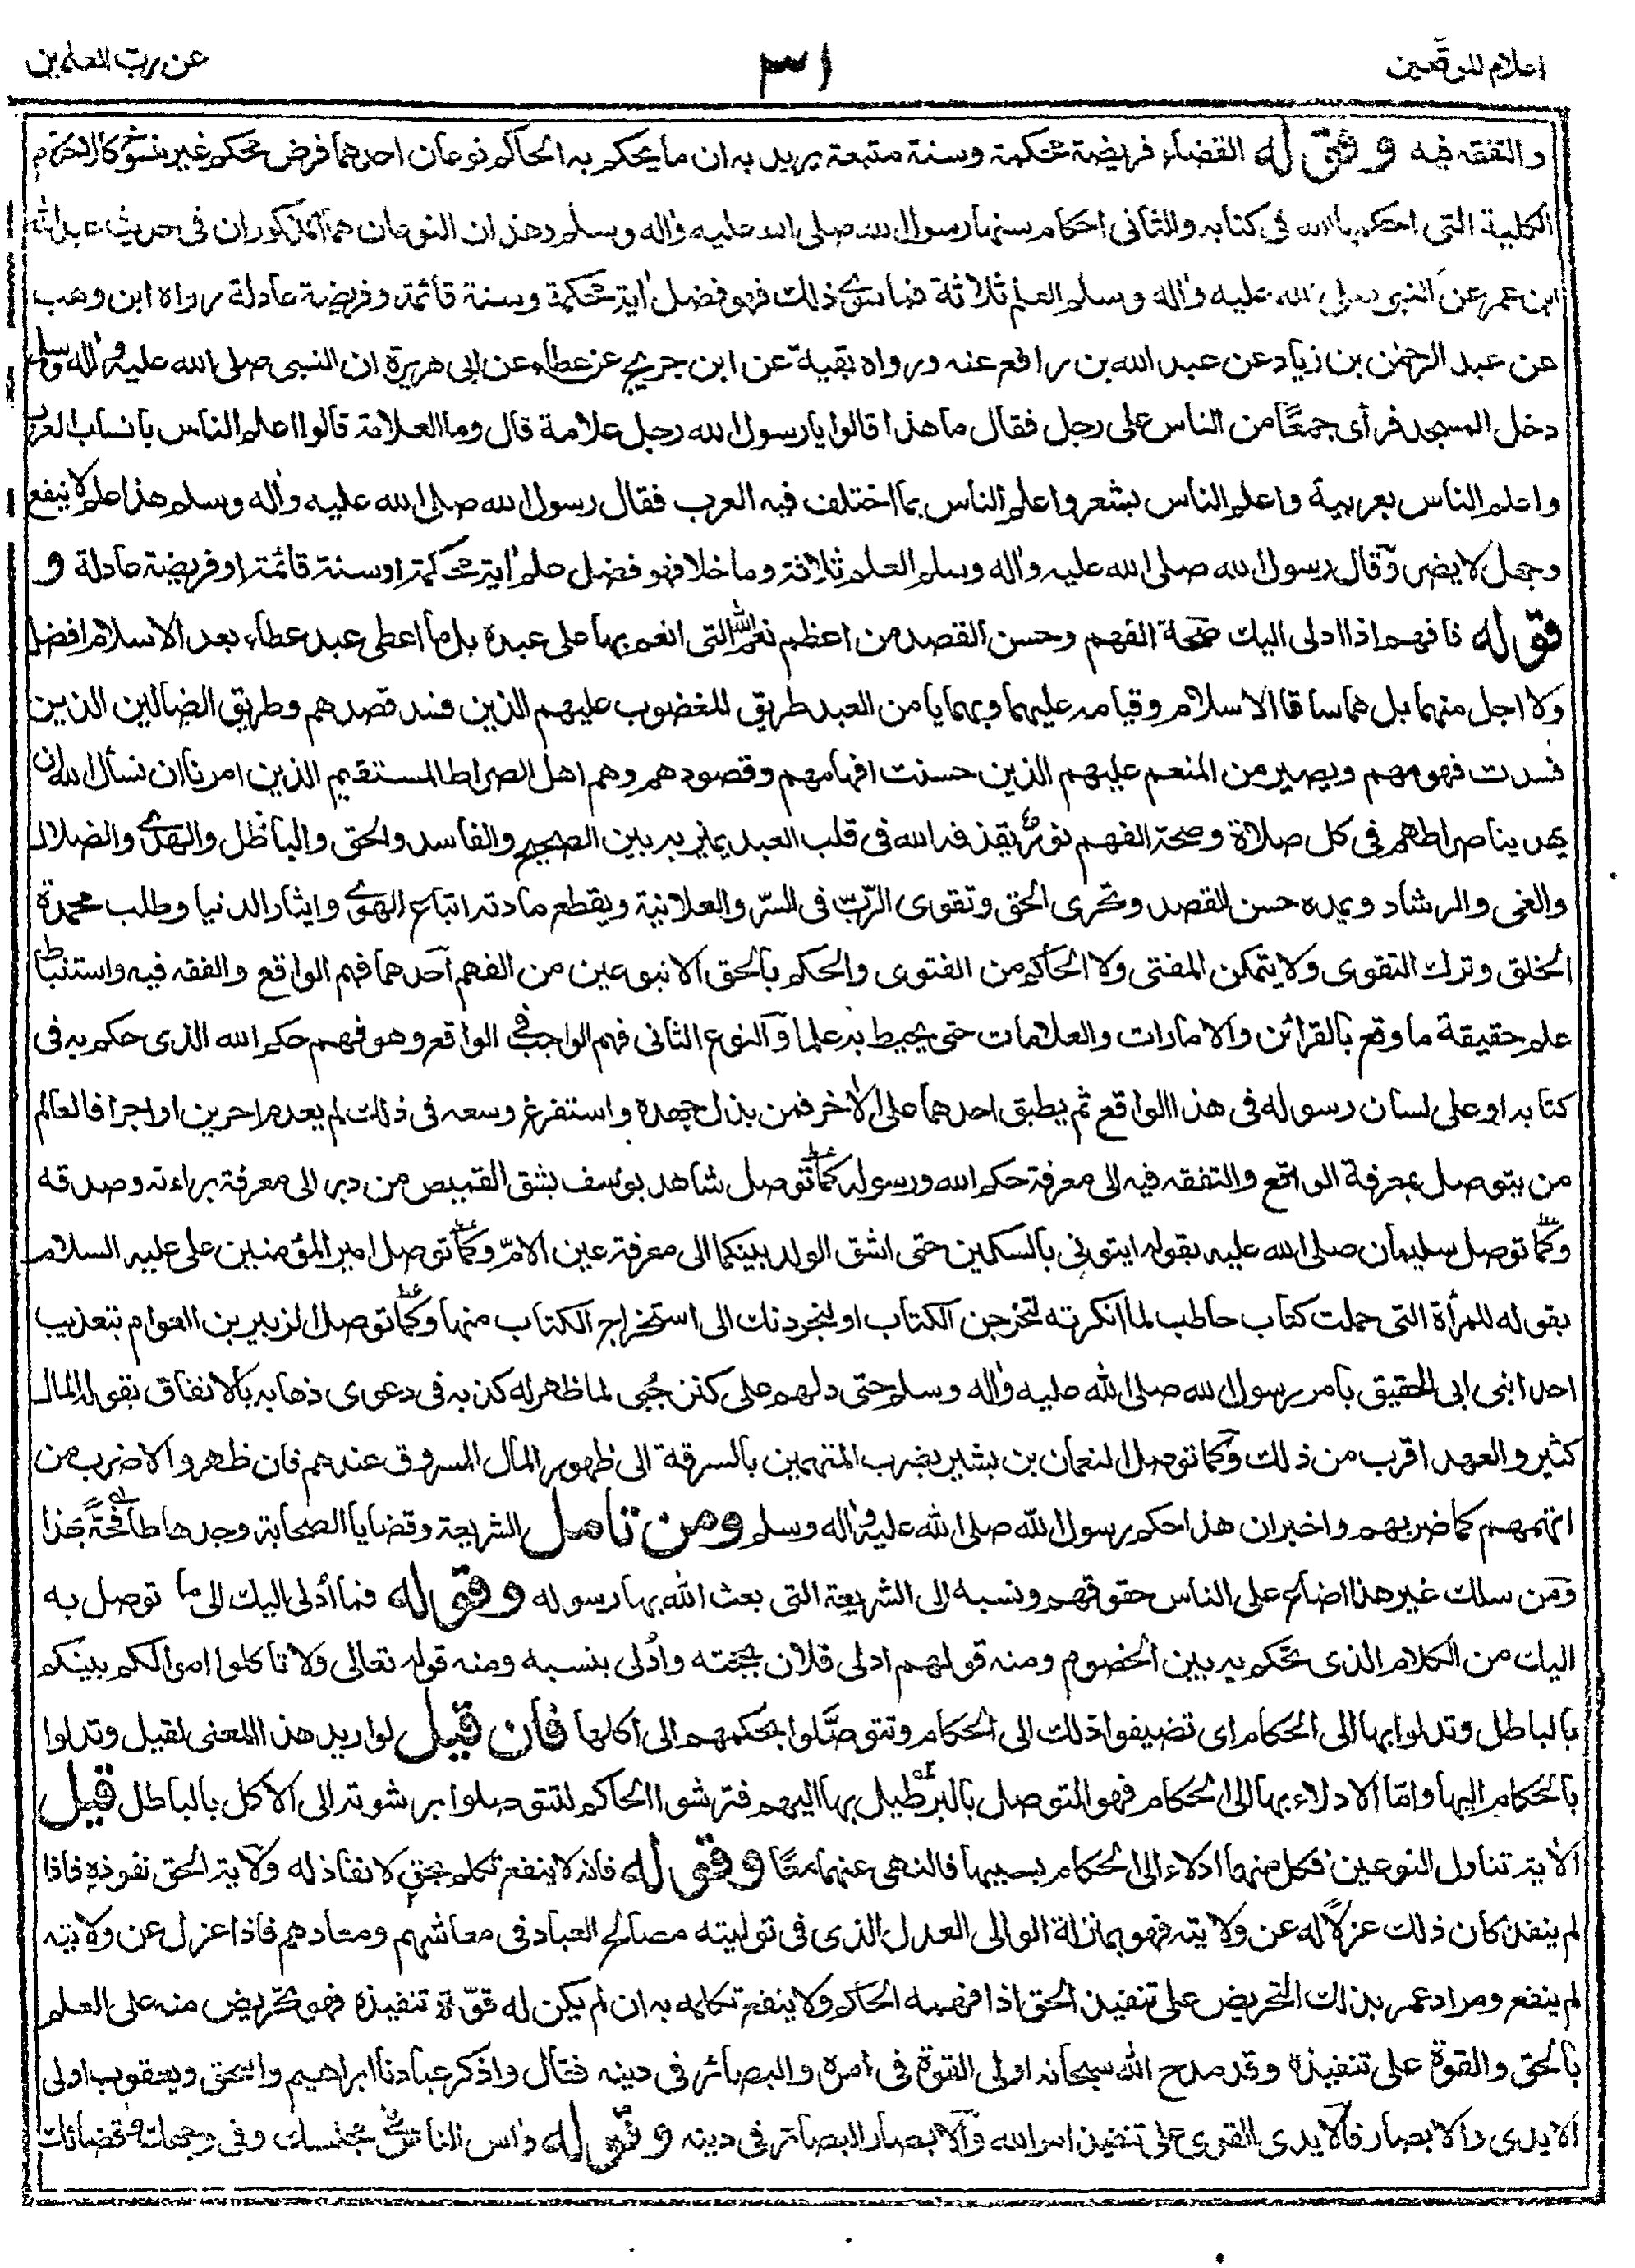 اعلام الموقعين
٣١
عن رب العلمين
والتفقه فيه وقوله القضاء فريضة محكمة وسنة متبعة يريد به ان ما يحكم به الحاكم نوعان احدهما فرض محكم غير منسوخ كالاحكام
الكلية التى احكمها الله فى كتابه والثانى احكام سنها رسول الله صلى الله عليه واله وسلم وهذان النوعان هما المذكوران فى حديث عبد الله
ابن عمر عن النبى صلى الله عليه واله وسلم العلم ثلاثة فما سوى ذلك فهو فضل اية محكمة وسنة قائمة وفريضة عادلة رواه ابن وهب
عن عبد الرحمن بن زياد عن عبد الله بن رافع عنه ورواه بقية عن ابن جريج عن عطاء عن ابى هريرة ان النبى صلى الله عليه واله وسلم
دخل المسجد فرأى جمعًا من الناس على رجل فقال ما هذا قالوا يا رسول الله رجل علامة قال وما العلامة قالوا اعلم الناس بانساب العرب
واعلم الناس بعربية واعلم الناس بشعر واعلم الناس بما اختلف فيه العرب فقال رسول الله صلى الله عليه واله وسلم هذا علم لا ينفع
وجهل لا يضر وقال رسول الله صلى الله عليه واله وسلم العلم ثلاثة وما خلا فهو فضل علم اية محكمة او سنة قائمة او فريضة عادلة و
قوله فافهم اذا ادلى اليك صحة الفهم وحسن القصد من اعظم نعم الله التى انعم بها على عبده بل ما اعطى عبد عطاء بعد الاسلام افضل
ولا اجل منهما بل هما ساقا الاسلام وقيامه عليهما وبهما يامن العبد طريق المغضوب عليهم الذين فسد قصدهم وطريق الضالين الذين
فسدت فهومهم ويصير من المنعم عليهم الذين حسنت افهامهم وقصودهم وهم اهل الصراط المستقيم الذين امرنا ان نسأل الله ان
يهدينا صراطهم فى كل صلاة وصحة الفهم نور يقذفه الله فى قلب العبد يميز به بين الصحيح والفاسد والحق والباطل والهدى والضلال
والغى والرشاد ويمده حسن القصد وتحرى الحق وتقوى الرّبّ فى السرّ والعلانية ويقطع مادته اتباع الهوى وايثار الدنيا وطلب محمدة
الخلق وترك التقوى ولا يتمكن المفتى ولا الحاكم من الفتوى والحكم بالحق الا نبوعين من الفهم احدهما فهم الواقع والفقه فيه واستنباط
علم حقيقة ما وقع بالقرائن والامارات والعلامات حتى يحيط به علما والنوع الثانى فهم الواجب فى الواقع وهو فهم حكم الله الذى حكم به فى
كتابه او على لسان رسوله فى هذا الواقع ثم يطبق احدهما على الاخر فمن بذل جهده واستفرغ وسعه فى ذلك لم يعدم اجرين او اجرا فالعالم
من يتوصل بمعرفة الواقع والتفقه فيه الى معرفة حكم الله ورسوله كما توصل شاهد يوسف بشق القميص من دبر الى معرفة براءته وصدقه
وكما توصل سليمان صلى الله عليه بقوله ايتونى بالسكين حتى اشق الولد بينكما الى معرفة عين الامّ وكما توصل امير المؤمنين على عليه السلام
بقوله للمرأة التى حملت كتاب حاطب لما انكرته لتخرجن الكتاب او لنجردنك الى استخراج الكتاب منها وكما توصل الزبير بن العوام بتعذيب
احد ابنى ابى الحقيق بامر رسول الله صلى الله عليه واله وسلم حتى دلهم على كنز حُيى لما ظهر له كذبه فى دعوى ذهابه بالانفاق بقوله المال
كثير والعهد اقرب من ذلك وكما توصل النعمان بن بشير بضرب المتهمين بالسرقة الى ظهور المال المسروق عندهم فان ظهر والا ضرب من
اتهمهم كما ضربهم واخبر ان هذا حكم رسول الله صلى الله عليه واله وسلم ومن تامل الشريعة وقضايا الصحابة وجدها طافحة بهذا
ومن سلك غير هذا اضاع على الناس حقوقهم ونسبه الى الشريعة التى بعث الله بها رسوله وقوله فما أدلى اليك اى ما توصل به
اليك من الكلام الذى تحكم به بين الخصوم ومنه قولهم ادلى فلان بحجته وادلى بنسبه ومنه قوله تعالى ولا تاكلوا اموالكم بينكم
بالباطل وتدلوا بها الى الحكام اى تضيفوا ذلك الى الحكام وتتوصّلوا بحكمهم الى اكلها فان قيل لو اريد هذا المعنى لقيل وتدلوا
بالحكام اليها وامّا الادلاء بها الى الحكام فهو التوصل بالبرطيل بها اليهم فترشوا الحاكم لتتوصلوا برشوته الى الاكل بالباطل قيل
الاية تتناول النوعين فكل منهما ادلاء الى الحكام بسببها فالنهى عنهما معًا وقوله فانه لا ينفع تكلم بحق لا نفاذ له ولاية الحق نفوذه فاذا
لم ينفذ كان ذلك عزلًا له عن ولايته فهو بمنزلة الوالى العدل الذى فى توليته مصالح العباد فى معاشهم ومعادهم فاذا عزل عن ولايته
لم ينفع ومراد عمر بذلك التحريض على تنفيذ الحق اذا فهمه الحاكم ولا ينفع تكلمه به ان لم يكن له قوّة تنفيذه فهو تحريض منه على العلم
بالحق والقوة على تنفيذه وقد مدح الله سبحانه اولى القوة فى امره والبصائر فى دينه فقال واذكر عبادنا ابراهيم واسحق ويعقوب اولى
الايدى والابصار فالايدى القوى على تنفيذ امر الله والابصار البصائر فى دينه وقوله واس الناس فى مجلسك وفى وجهك وقضائك